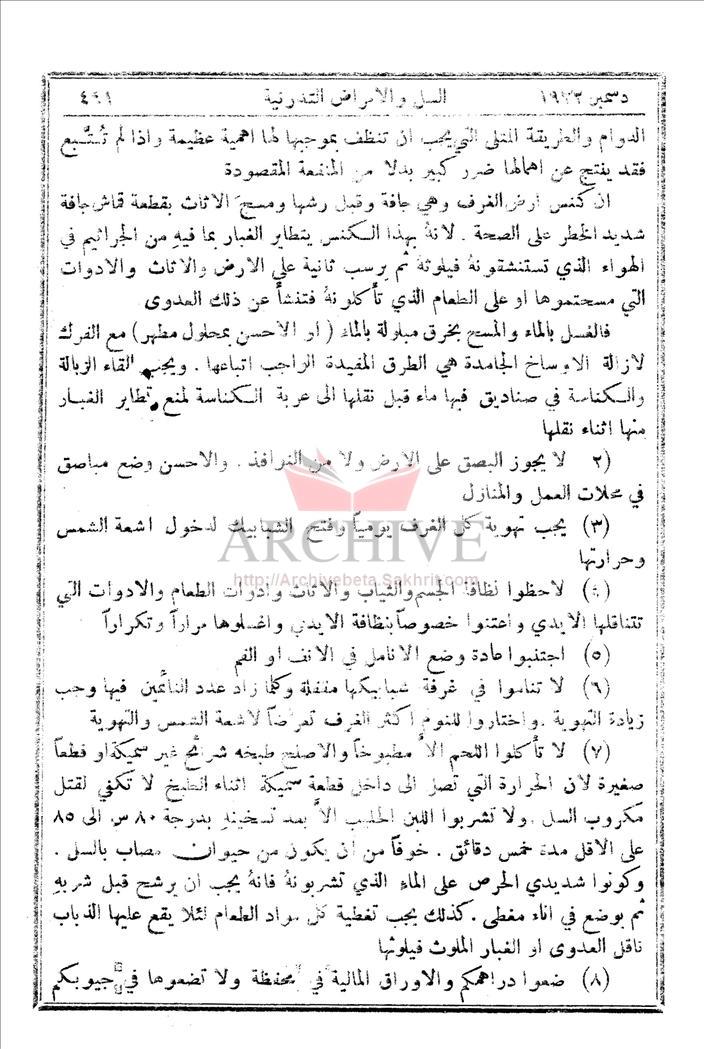 دسمبر ١٩٢٣ السل والامراض التدرنية ٤٩١
الدوام والطريقة المثلى التي يجب ان تنظف بموجبها لها اهمية عظيمة واذا لم تُتَّبع
فقد ينتج عن اهمالها ضرر كبير بدلا من المنفعة المقصودة
ان كنس ارض الغرف وهي جافة وقبل رشها ومسح الاثاث بقطعة قماش جافة
شديد الخطر على الصحة . لانهُ بهذا الكنس يتطاير الغبار بما فيهِ من الجراثيم في
الهواء الذي تستنشقونهُ فيلوثهُ ثم يرسب ثانية على الارض والاثاث والادوات
التي مسحتموها او على الطعام الذي تأكلونهُ فتنشأ عن ذلك العدوى
فالغسل بالماء والمسح بخرق مبلولة بالماء ( او الاحسن بمحلول مطهر ) مع الفرك
لازالة الاوساخ الجامدة هي الطرق المفيدة الواجب اتباعها . ويجب القاء الزبالة
والكناسة في صناديق فيها ماء قبل نقلها الى عربة الكناسة لمنع تطاير الغبار
منها اثناء نقلها
(٢) لا يجوز البصق على الارض ولا من النوافذ . والاحسن وضع مباصق
في محلات العمل والمنازل
(٣) يجب تهوية كل الغرف يومياً وفتح الشبابيك لدخول اشعة الشمس
وحرارتها
ARCHIVE
http://Archivebeta.Sakhrit.com
(٤) لاحظوا نظافة الجسم والثياب والاثاث وادوات الطعام والادوات التي
تتناقلها الايدي واعتنوا خصوصاً بنظافة الايدي واغسلوها مراراً وتكراراً
(٥) اجتنبوا عادة وضع الانامل في الانف او الفم
(٦) لا تناموا في غرفة شبابيكها مقفلة وكلما زاد عدد النائمين فيها وجب
زيادة التهوية . واختاروا للنوم اكثر الغرف تعرضاً لاشعة الشمس والتهوية
(٧) لا تأكلوا اللحم الاَّ مطبوخاً والاصلح طبخه شرائح غير سميكة او قطعاً
صغيرة لان الحرارة التي تصل الى داخل قطعة سميكة اثناء الطبخ لا تكفي لقتل
مكروب السل . ولا تشربوا اللبن الحليب الاَّ بعد تسخينهِ بدرجة ٨٠ س الى ٨٥
على الاقل مدة خمس دقائق . خوفاً من ان يكون من حيوان مصاب بالسل .
وكونوا شديدي الحرص على الماء الذي تشربونهُ فانهُ يجب ان يرشح قبل شربهِ
ثم يوضع في اناء مغطى . كذلك يجب تغطية كل مواد الطعام لئلا يقع عليها الذباب
ناقل العدوى او الغبار الملوث فيلوثها
(٨) ضعوا دراهمكم والاوراق المالية في محفظة ولا تضعوها في جيوبكم